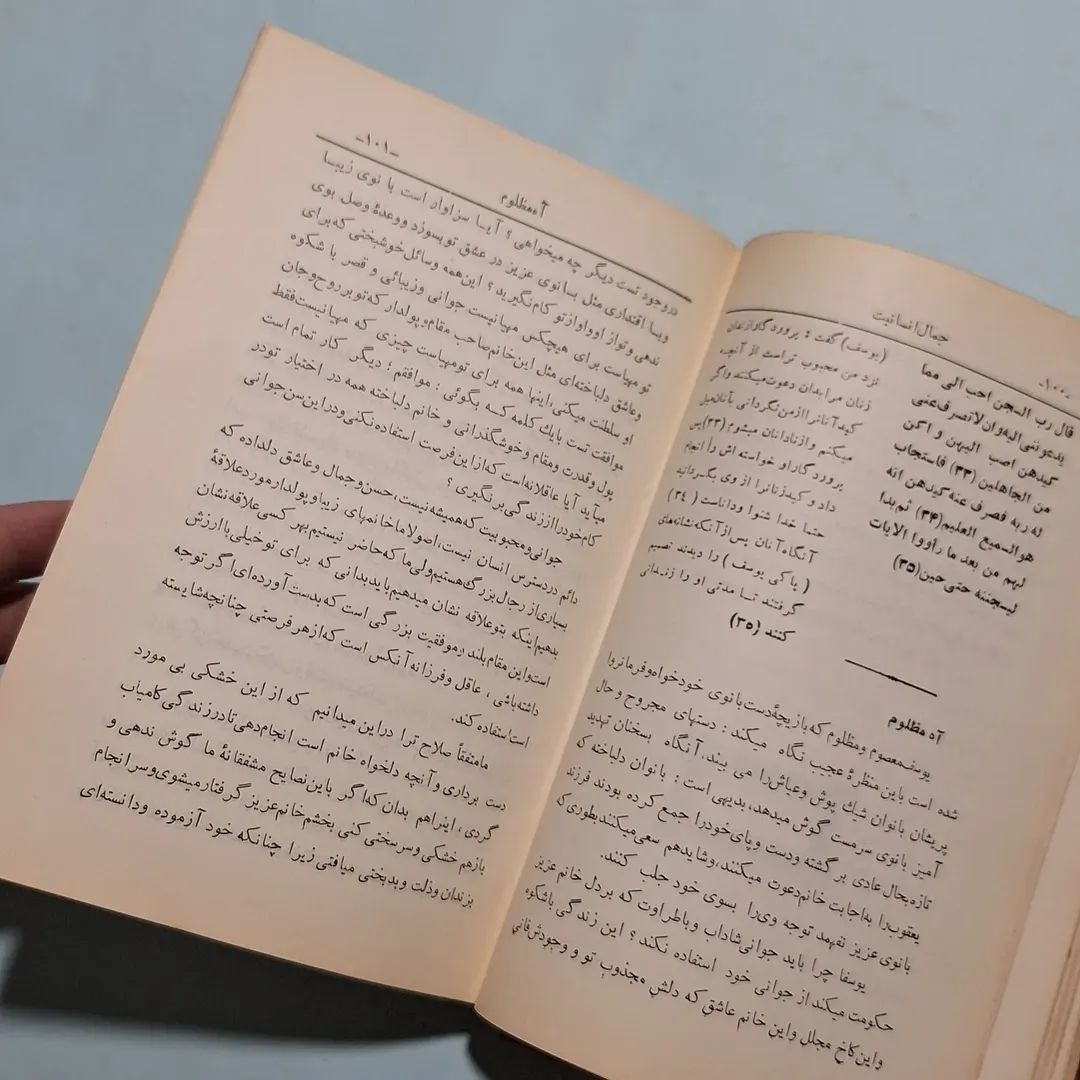 -۱۰۰-
جمال انسانیت
قال رب السجن احب الی مما
یدعوننی الیه وان لاتصرف عنی
کیدهن اصب الیهن و اکن
من الجاهلین (۳۳) فاستجاب
له ربه فصرف عنه کیدهن انه
هو السمیع العلیم (۳۴) ثم بدا
لهم من بعد ما رأووا الایات
لیسجننه حتی حین (۳۵)
(یوسف) گفت : پروردگارا زندان
نزد من محبوب تر است از آنچه
زنان مرا بدان دعوت میکنند واگر
کید آنانرا از من نگردانی بآنان میل
میکنم و از نادانان میشوم (۳۳) پس
پروردگار او خواسته اش را انجام
داد و کید زنانرا از وی بگردانید
حتما خدا شنوا ودانا است (۳۴)
آنگاه آنان پس از آنکه نشانه‌های
( پاکی یوسف ) را دیدند تصمیم
گرفتند تا مدتی او را زندانی
کنند (۳۵)
آه مظلوم
یوسف معصوم ومظلوم که بازیچهٔ دست بانوی خودخواه وفرمانروا
شده است باین منظرهٔ عجیب نگاه میکند : دستهای مجروح و حال
پریشان بانوان شیك پوش وعیاش را می بیند، آنگاه بسخنان تهدید
آمیز بانوی سرمست گوش میدهد، بدیهی است : بانوان دلباخته که
تازه بحال عادی بر گشته ودست و پای خود را جمع کرده بودند فرزند
یعقوب را به اجابت خانم دعوت میکنند، وشاید هم سعی میکنند بطوری که
بانوی عزیز نفهمد توجه وی را بسوی خود جلب کنند.
یوسفا چرا باید جوانی شاداب وباطراوت که بردل خانم عزیز
حکومت میکند از جوانی خود استفاده نکند ؟ این زندگی باشکوه
و این کاخ مجلل واین خانم عاشق که دلش مجذوب تو و وجودش فانی
-۱۰۱-
آه مظلوم
در وجود تست دیگر چه میخواهی ؟ آیا سزاوار است بانوی زیبا
وبا اقتداری مثل بانوی عزیز در عشق تو بسوزد ووعدهٔ وصل بوی
ندهی وتو از او واو از تو کام نگیرید ؟ این همه وسائل خوشبختی که برای
تو مهیاست برای هیچکس مهیا نیست جوانی وزیبائی و قصر با شکوه
وعاشق دلباخته‌ای مثل این خانم صاحب مقام، پولدار که تو بر روح وجان
او سلطنت میکنی، اینها همه برای تو مهیاست چیزی که مهیا نیست فقط
موافقت تست با یك کلمه که بگوئی : موافقم ؛ دیگر کار تمام است
پول وقدرت ومقام وخوشگذرانی و خانم دلباخته همه در اختیار تو در
میآید آیا عاقلانه است که از این فرصت استفاده نکنی ودر این سن جوانی
کام خود را از زندگی بر نگیری ؟
جوانی و محبوبیت که همیشه نیست، حسن وجمال وعاشق دلداده که
دائم در دسترس انسان نیست، اصولا ما خانمهای زیبا و پولدار مورد علاقهٔ
بسیاری از رجال بزرگ هستیم ولی ما که حاضر نیستیم بهر کسی علاقه نشان
بدهیم اینکه بتو علاقه نشان میدهیم باید بدانی که برای تو خیلی باارزش
است واین مقام بلند وموفقیت بزرگی است که بدست آورده‌ای اگر توجه
داشته باشی ، عاقل وفرزانه آنکس است که از هر فرصتی چنانچه شایسته
است استفاده کند.
ما متفقاً صلاح ترا در این میدانیم که از این خشکی بی مورد
دست برداری و آنچه دلخواه خانم است انجام دهی تا در زندگی کامیاب
گردی، اینراهم بدان که اگر باین نصایح مشفقانهٔ ما گوش ندهی و
باز هم خشکی وسر سختی کنی بخشم خانم عزیز گرفتار میشوی وسر انجام
بزندان وذلت وبدبختی میافتی زیرا چنانکه خود آزموده ودانسته‌ای